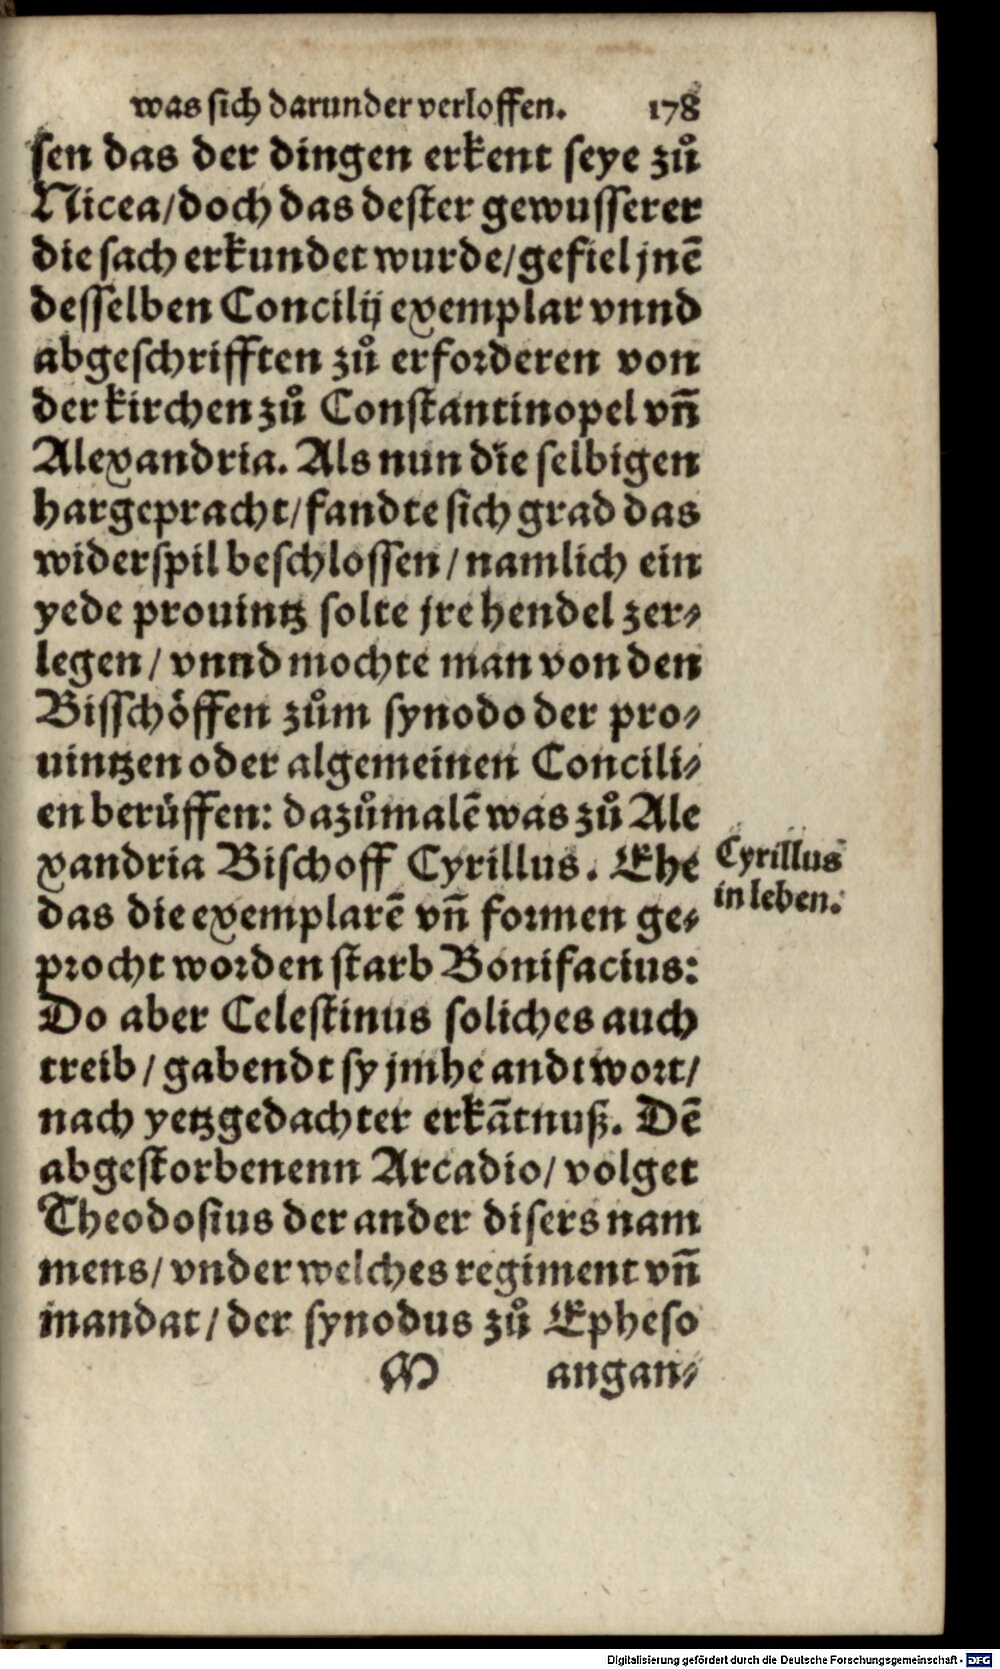 was sich darunder verloffen. 178
sen das der dingen erkent seye zů
Nicea/doch das dester gewusserer
die sach erkundet wurde/gefiel jnē
desselben Concilij exemplar vnnd
abgeschrifften zů erforderen von
der kirchen zů Constantinopel vñ
Alexandria. Als nun die selbigen
hargepracht/fandte sich grad das
widerspil beschlossen/namlich ein
yede prouintz solte jre hendel zer⸗
legen/vnnd mochte man von den
Bisschöffen zům synodo der pro⸗
uintzen oder algemeinen Concili⸗
en berüffen: dazůmalē was zů Ale
xandria Bischoff Cyrillus. Ehe
das die exemplarē vñ formen ge⸗
procht worden starb Bonifacius:
Do aber Celestinus soliches auch
treib/gabendt sy jmhe andtwort/
nach yetzgedachter erkātnuß. Dē
abgestorbenenn Arcadio/volget
Theodosius der ander disers nam
mens/vnder welches regiment vñ
mandat/der synodus zů Epheso
M angan⸗
Cyrillus
in leben.
Digitalisierung gefördert durch die Deutsche Forschungsgemeinschaft - DFG